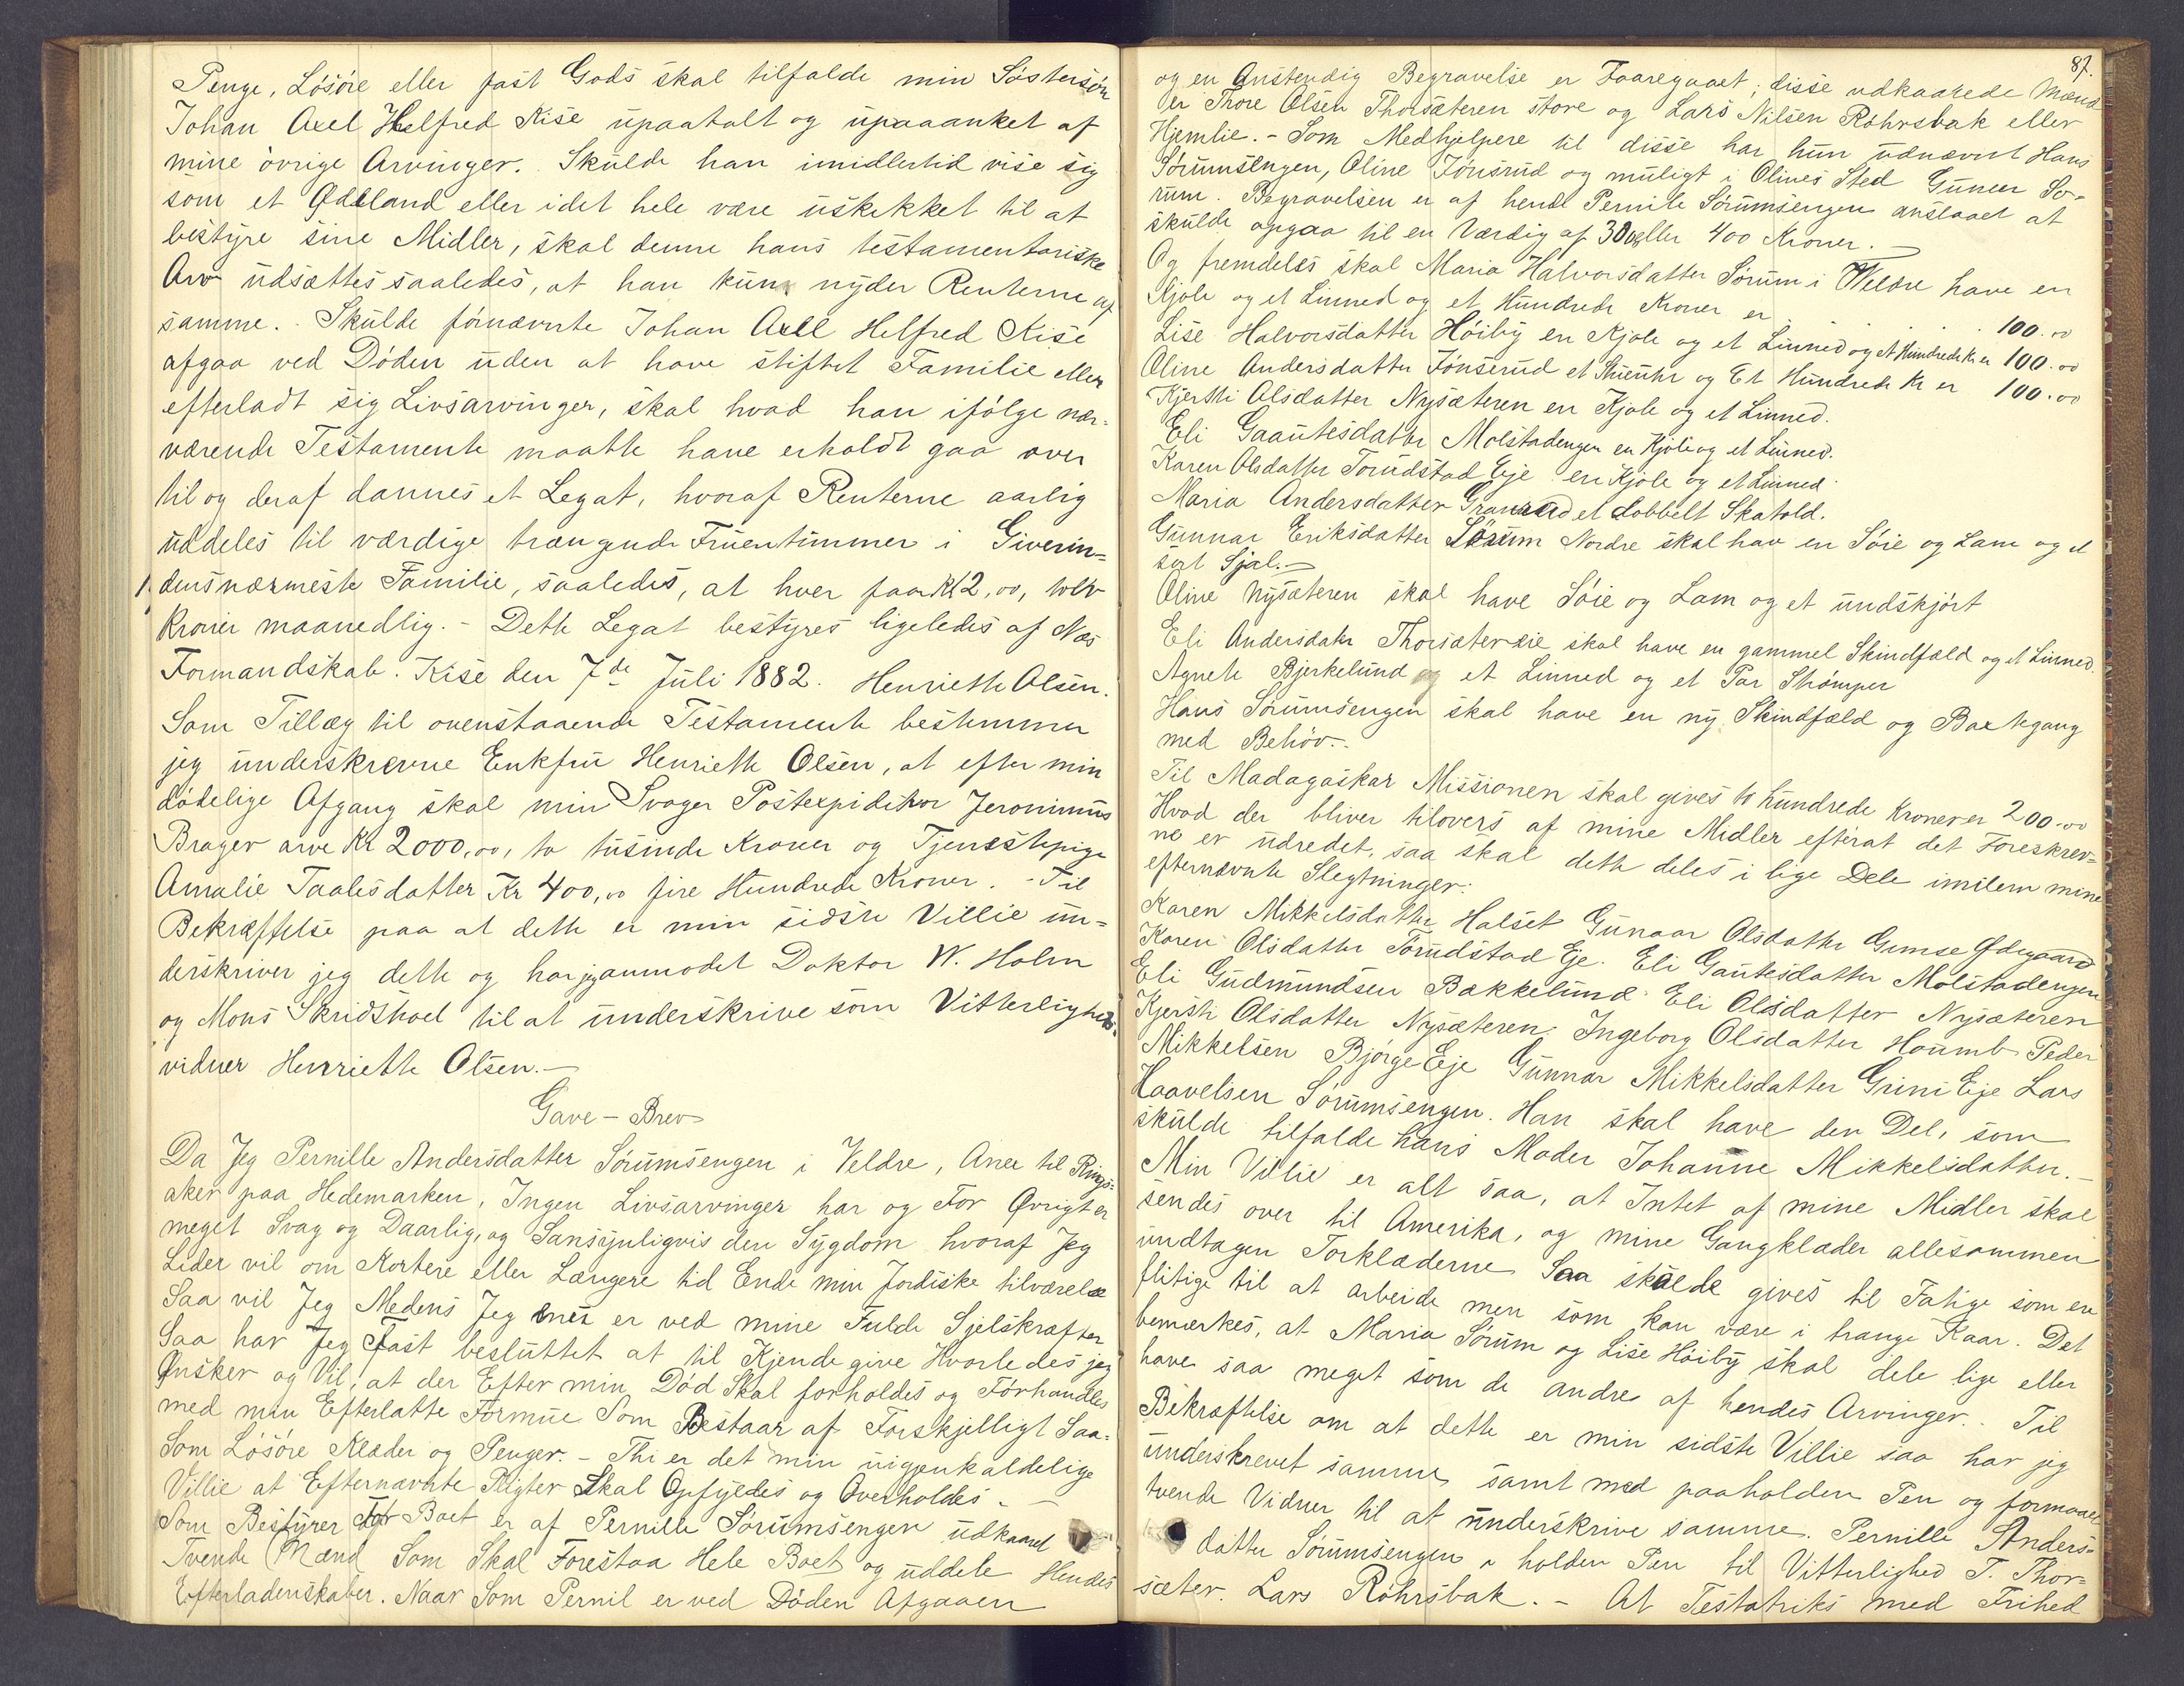 Penge, Løsøre eller fast Gods skal tilfalde min Søstersøn
Johan Axel Helfred Kise upaatalt og upaaanket af
mine øvrige Arvinger. Skulde han imidlertid vise sig
som et Ødeland eller i det hele være uskikket til at
bestyre sine Midler, skal denne hans testamentariske
Arv udsættes saaledes, at han kun nyder Renterne af
samme. Skulde førnævnte Johan Axel Helfred Kise
afgaa ved Døden uden at have stiftet Familie eller
efterladt sig Livsarvinger, skal hvad han ifølge nær-
værende Testamente maatte have erholdt gaa over
til og deraf dannes et Legat, hvoraf Renterne aarlig
uddeles til værdige trængende Fruentimmer i Giverin-
dens nærmeste Familie, saaledes, at hver faar K 12,00, tolv
Kroner maanedlig. - Dette Legat bestyres ligeledes af Næs
Formandskab. Kise den 7de Juli 1882. Henriette Olsen.
Som Tillæg til ovenstaaende Testamente bestemmer
jeg underskrevne Enkefru Henriette Olsen, at efter min
dødelige Afgang skal min Svoger Postexpeditør Jeronimus
Brager arve Kr 2000,00, to tusinde Kroner og Tjenestepige
Amalie Taalesdatter Kr 400,00 fire Hundrede Kroner. - Til
Bekræftelse paa at dette er min sidste Villie un-
derskriver jeg dette og har jeg anmodet Doktor W. Holm
og Mons Skridshoel til at underskrive som Vitterligheds-
vidner Henriette Olsen. -
Gave - Brev
Da Jeg Pernille Andersdatter Sørumsengen i Veldre, Anex til Rings-
aker paa Hedemarken, Ingen Livsarvinger har og For Øvrigt er
meget Svag og Daarlig, og Sansynligvis den Sygdom hvoraf Jeg
Lider vil om Kortere eller Længere tid Ende min Jordiske tilværelse
Saa vil Jeg Medens Jeg er ved mine Fulde Sjelskrafter
Saa har Jeg Fast besluttet at til Kjende give Hvorledes jeg
Ønsker og Vil, at der Efter min Død Skal forholdes og Forhandles
med min Efterlatte Formue Som Bestaar af Forskjelligt Saa-
Som Løsøre Klæder og Penger. - Thi er det min uigjenkaldelige
Villie at Efternævnte Pligter Skal Opfyldes og Overholdes. -
Som Bestyrer for Boet er af Pernille Sørumsengen udkaaret
Tvende Mænd Som Skal Forestaa Hele Boet og uddele Hendes
Efterladenskaber. Naar Som Pernil er ved Døden Afgaaen
87.
og en Anstendig Begravelse er Foaregaaet; disse udkaarede Mænd
er Thore Olsen Thorsæteren store og Lars Nilsen Røhrsbak eller
Hjemlie. - Som Medhjelpere til disse har hun udnævnt Hans
Sørumsengen, Oline Jønsrud og muligt i Olines Sted Guneer So-
rum. Begravelsen er af hende Pernile Sørumsengen anslaaet at
skulde opgaa til en Værdig af 300 eller 400 Kroner. -
Og fremdeles skal Maria Halvorsdatter Sørum i Weldre have en
Kjole og et Linned og et Hundrede Kroner er . . . . 100.00
Lise Halvorsdatter Høiby en Kjole og et Linned og et Hundrede Kr er 100.00
Oline Andersdatter Jønserud et Stueuhr og Et Hundrede Kr er 100.00
Kjersti Olsdatter Nysæteren en Kjole og et Linned.
Eli Gaautesdatter Molstadengen en Kjole og et Linned.
Karen Olsdatter Torudstad Eje en Kjole og et Linned.
Maria Andersdatter et dobbelt Skatold.
Gunnar Eriksdatter Sørum Nordre skal hav en Søie og Lam og et
sort Sjal. -
Oline Nysæteren skal have Søie og Lam og et undskjørt
Eli Andersdatr Thorsætereie skal have en gammel Skindfæld og et Linned.
Agnete Bjerkelund og et Linned og et Par Strømper
Hans Sørumsengen skal have en ny Skindfæld og
med Behøv. -
Til Madagaskar Missionen skal gives to hundrede Kroner er 200.00
Hvad der bliver tilovers af mine Midler efterat det Foreskrev-
ne er udredet, saa skal dette deles i lige Dele imilem mine
efternævnte Slegtninger:
Karen Mikkelsdatter Halset Gunaar Olsdatter Gumse Ødegaard
Karen Olsdatter Torudstad Eje. Eli Gautesdatter Molstadengen
Eli Gudmundsen Bakkelund. Eli Olsdatter Nysæteren
Kjersti Olsdatter Nysæteren. Ingeborg Olsdatter Houmb Peder
Mikkelsen Bjørge Eje Gunnar Mikkelsdatter Grini Eje Lars
Haavelsen Sørumsengen. Han skal have den Del, som
skulde tilfalde hans Moder Johanne Mikkelsdatter. -
Min Villie er alt saa, at Intet af mine Midler skal
sendes over til Amerika, og mine Gangklæder allesammen
undtagen Torklæderne Saa skulde gives til Fatige som er
flitige til at arbeide men som kan være i trange Kaar. Det
bemærkes, at Maria Sørum og Lise Høiby skal dele lige eller
have saa meget som de andre af hendes Arvinger. - Til
Bekræftelse om at dette er min sidste Villie saa har jeg
underskrevet samme samt med paaholden Pen og formaaet
tvende Vidner til at underskrive samme. Pernille Anders-
datter Sørumsengen i holden Pen til Vitterlighed T. Thor-
sæter. Lars Røhrsbak. - At Testatriks med Frihed